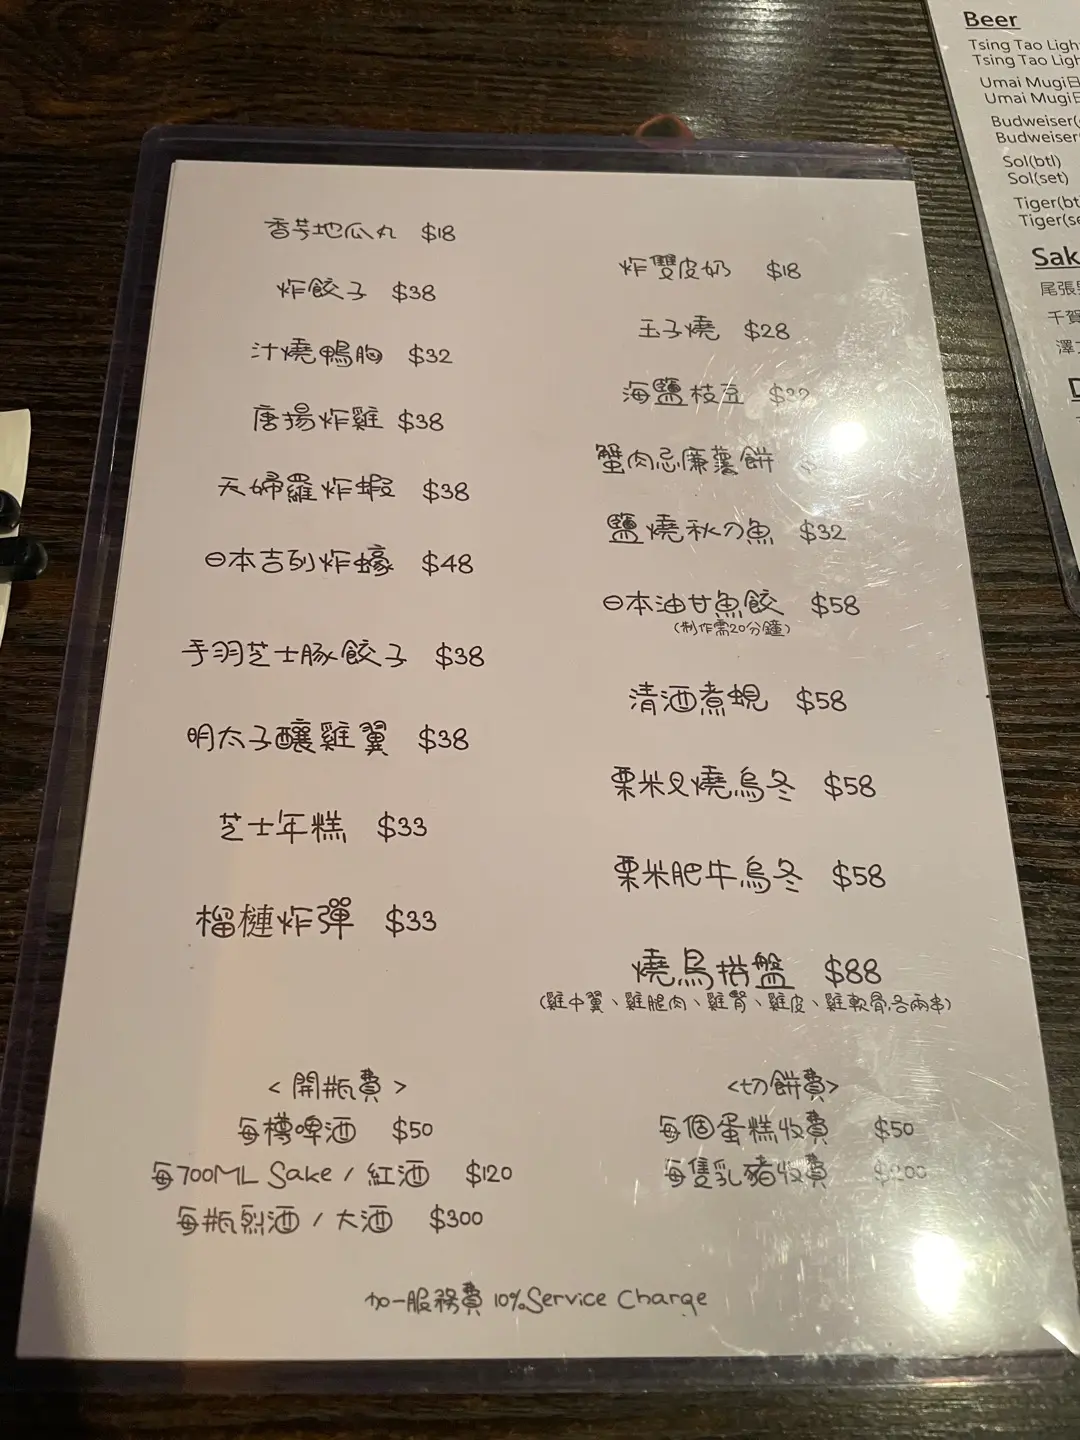 香芋地瓜丸 $18
炸餃子 $38
汁燒鴨胸 $32
唐揚炸雞 $38
天婦羅炸蝦 $38
日本吉列炸蠔 $48
手羽芝士豚餃子 $38
明太子釀雞翼 $38
芝士年糕 $33
榴槤炸彈 $33
炸雙皮奶 $18
玉子燒 $28
海鹽枝豆
蟹肉忌廉薯餅
鹽燒秋刀魚 $32
日本油甘魚餃 $58
(制作需20分鐘)
清酒煮蜆 $58
粟米叉燒烏冬 $58
粟米肥牛烏冬 $58
燒鳥拼盤 $88
(雞中翼、雞腿肉、雞腎、雞皮、雞軟骨,各兩串)
< 開瓶費 >
每樽啤酒 $50
每700ML Sake / 紅酒 $120
每瓶烈酒 / 大酒 $300
<切餅費>
每個蛋糕收費 $50
每隻乳豬收費 $200
加一服務費 10% Service Charge
Beer
Tsing Tao
Tsing Tao
Umai Mugi
Umai Mugi
Budweiser
Budweiser
Sol(btl)
Sol(set)
Tiger
Tiger
尾張
千賀
澤